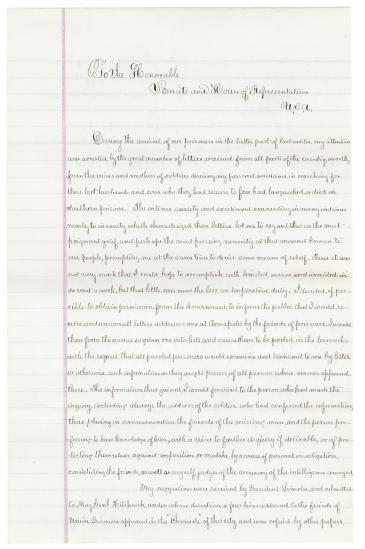 To the Honorable
Senate and House of Representatives
U.S.A.
During the arrival of our prisoners in the latter part of last winter my attention
was arrested by the great number of letters received from all parts of the country, mostly
from the wives and mothers of soldiers desiring my personal assistance in searching for
their lost husbands and sons who they had reason to fear had languished or died in
Southern prisons. The intense anxiety and excitement amounting in many instances
nearly to insanity which characterized these letters led me to regard this as the most
poignant grief, and perhaps the most pressing necessity at that moment known to
our people, prompting me at the same time to devise some means of relief. There was
not very much that I could hope to accomplish with limited means and unaided in
so vast a work, but that little was none the less an imperative duty. I decided if pos-
sible to obtain permission from the Government to inform the public that I would re-
ceive and answer all letters addressed me at Annapolis by the friends of prisoners. I would
then form the names so given me into lists and cause them to be posted in the barracks
with the request that all paroled prisoners would examine and transmit to me by letter
or otherwise, such information as they might possess of all persons whose names appeared
there. The information thus gained I would forward to the person who had made the
inquiry, including always the address of the soldier who had conferred the information,
thus placing in communication the friends of the missing man, and the person pro-
fessing to have knowledge of him, with a view to further inquiry if desirable, or of pro-
tecting themselves against imposition or mistake, by a course of personal investigation,
constituting the friends, as well as myself judges of the accuracy of the intelligence conveyed.
My suggestions were received by President Lincoln, and submitted
to Maj. Genl. Hitchcock, under whose direction a few lines addressed to the friends of
Union Prisoners appeared in the Chronicle of this city and were copied by other papers.